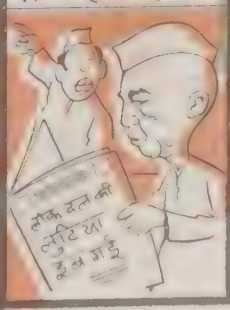 लोक दल की
लुटिया
डूब गई